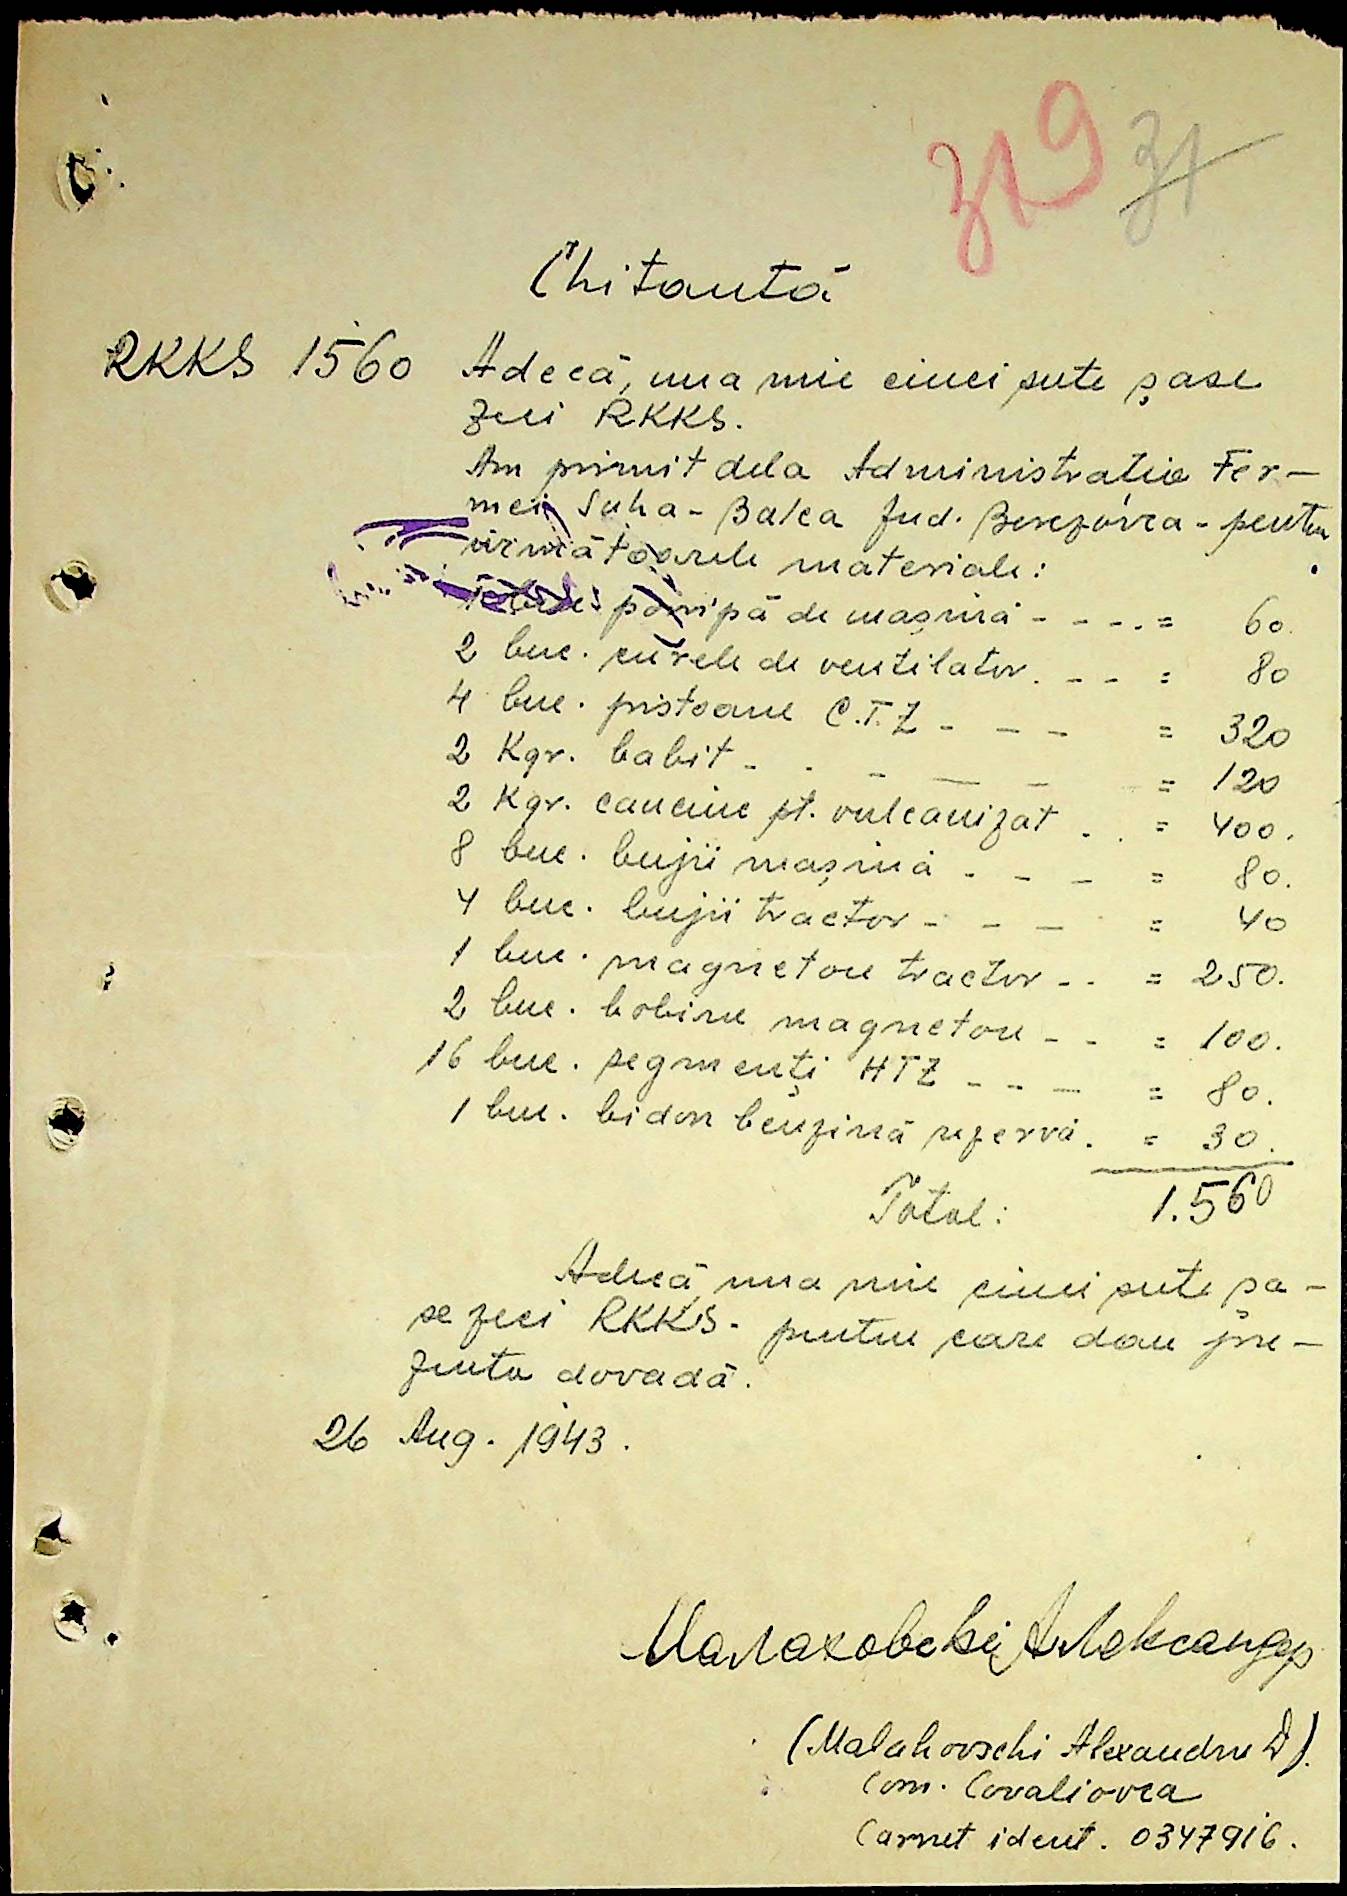 319 31
Chitantă
RKKS 1560 Adecă, una mie cinci sute șase
zeci RKKS.
Am primit dela Administratia Fer-
mei Suha-Balca Jud. Berezovca - pentru
următoarele materiale:
1 buc. pompă de mașină - - - - = 60.
2 buc. curele de ventilator. - - = 80
4 buc. pistoane C.T.Z - - - = 320
2 Kgr. babit - - - - - = 120
2 Kgr. cauciuc pt. vulcanizat . . = 400.
8 buc. bujii mașină - - - = 80.
4 buc. bujii tractor - - - = 40
1 buc. magnetou tractor - - = 250.
2 buc. bobine magnetou - - = 100.
16 buc. segmenți HTZ - - - = 80.
1 buc. bidon benzină rezervă. = 30.
Total: 1.560
Adecă, una mie cinci sute șa-
se zeci RKKS. pentru care dau pre-
zenta dovadă.
26 Aug. 1943.
Малаховскій Александр
(Malahovschi Alexandru D).
Com. Covaliovca
Carnet ident. 0347916.